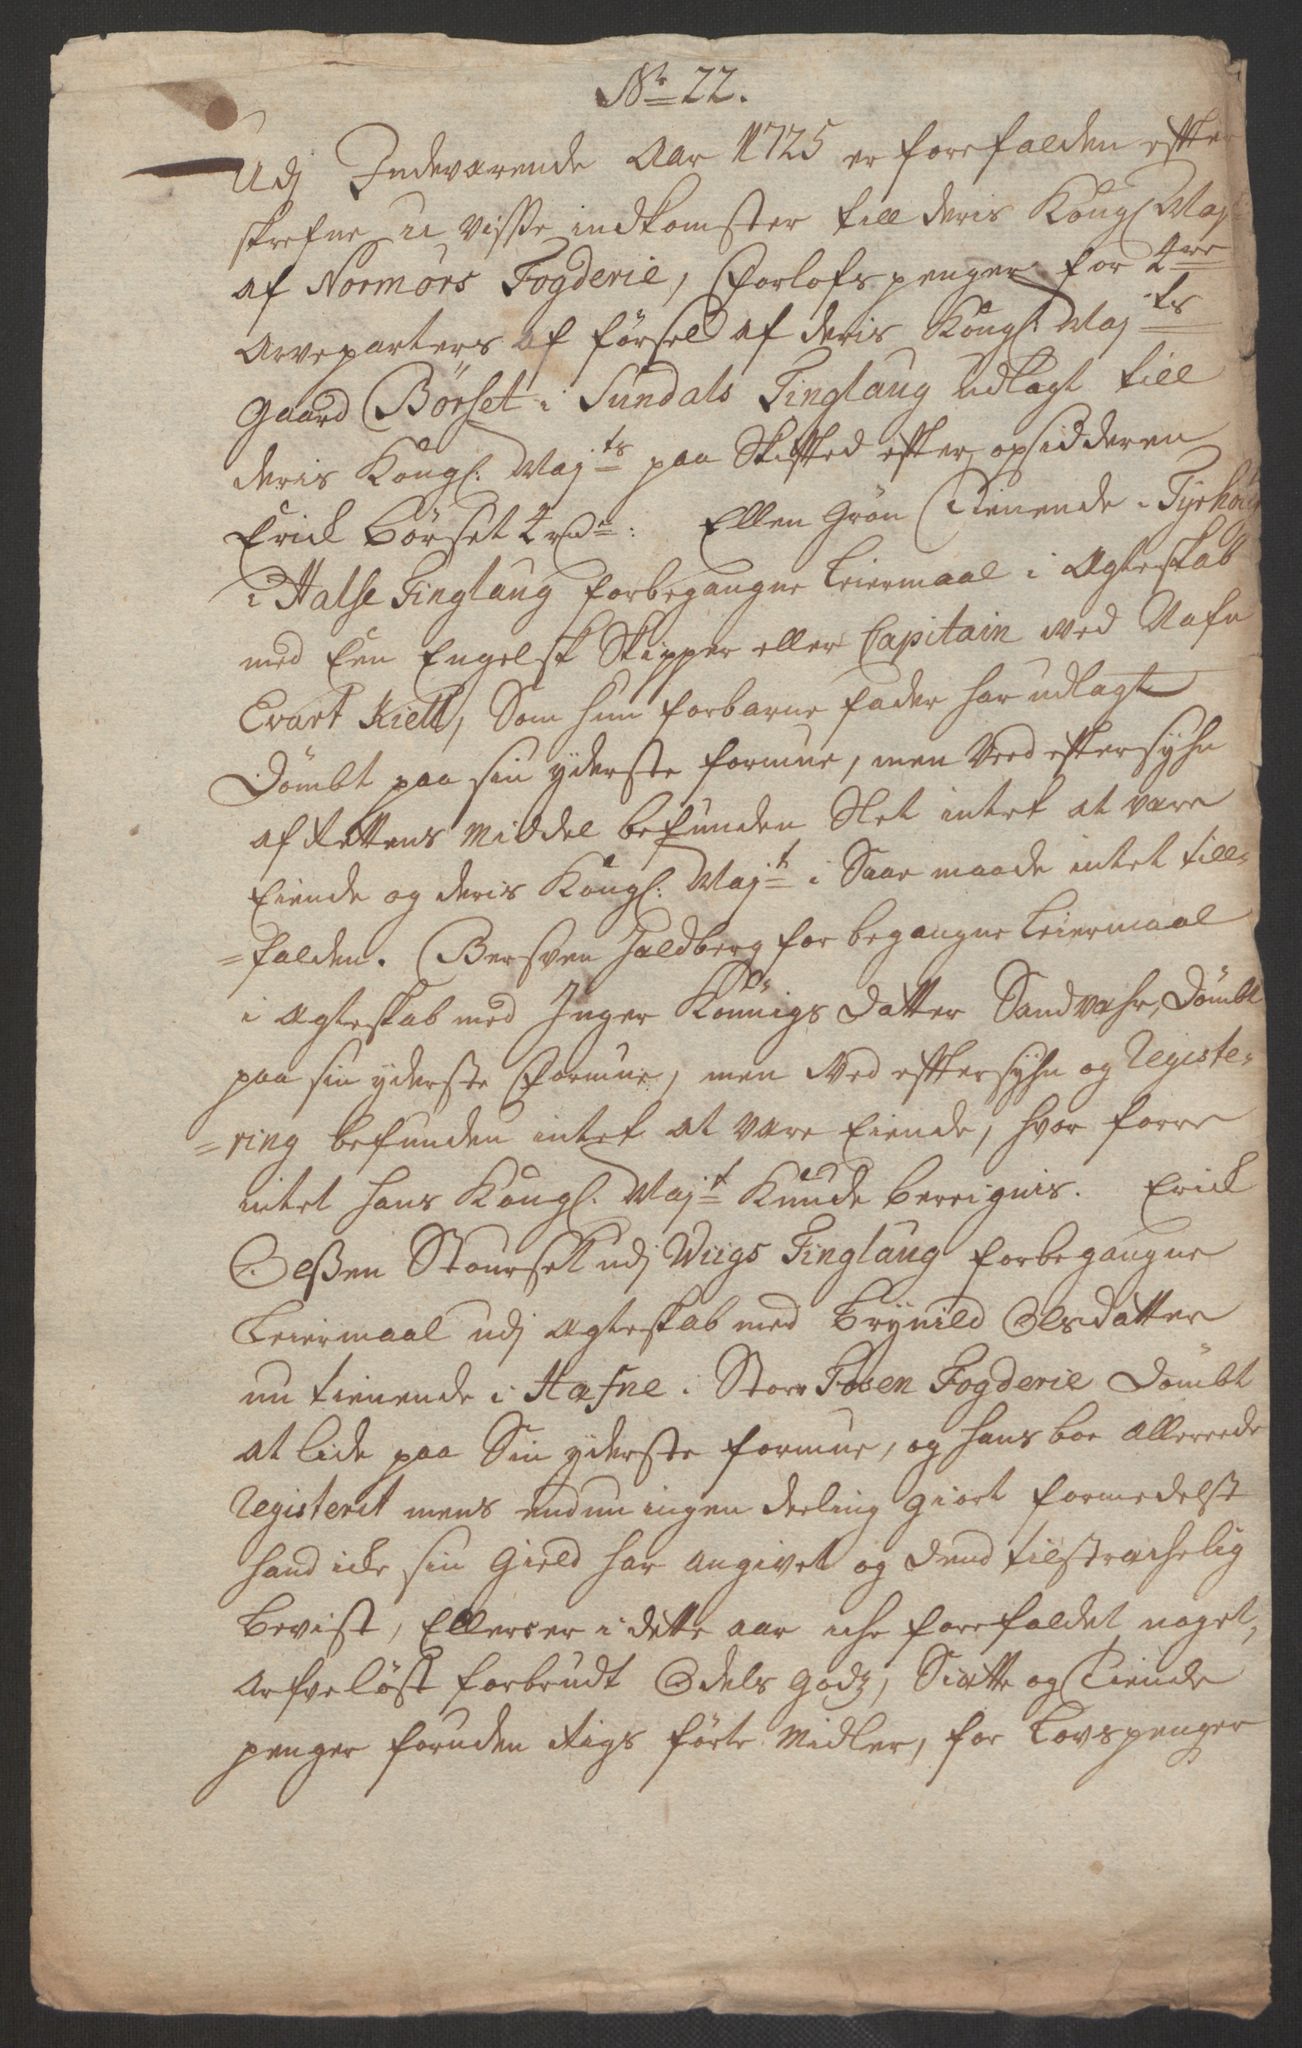 No 22.
Udj Indeværende Aar 1725 er forefalden efter
skrefne u visse indkomster till deris Kongl Maj
af Normørs Fogderie, Forlofs penger for 2de
Arveparters af førsel af deris Kongl. Majts
gaard Börset i Sundals Tinglaug udlagt till
deris Kongl. Majts paa Skifted efter opsidderen
Erick Börset 2 rd: Ellen Grön Tienende i Tyrhoug
i Halse Tinglaug forbegangne Leiermaal i Agteskab
med Een Engelsk Skipper eller Capitain ved Nafn
Evart Kiell, Som hun for barne fader har udlagt
Dömbt paa sin yderste formue, men ved eftersyhn
af Rettens Middel befunden Slet intet at være
Eiende og deris Kongl: Majt i Saae maade intet till=
=falden. Bersven Haldberg for begangne Leiermaal
i Agteskab med Inger Konnigs datter Sandvahr, Dömbt
paa sin yderste Formue, men ved eftersyhn og Registe=
=ring befunden intet at være Eiende, hvor forre
intet hans Kongl. Majt Kunde bereignis. Erick
Olßen Stourset udj Wiigs Tinglaug forbegangne
Leiermaal udj Agteskab med Brynild Olsdatter
nu tienende i Hæfne i Stor Fosen Fogderie Dömbt
at lide paa Sin yderste formue, og hans boe allereede
Registerit mens endnu ingen deeling giort formedelst
hand icke sin Gield har angivet og dend tilstrachelig
bevist, Ellers er i dette aar iche forefaldet noget,
Arfveløst forbrudt Odels godz, Siette og Tiende
penger foruden Rigs førte Midler, for Lovspenger